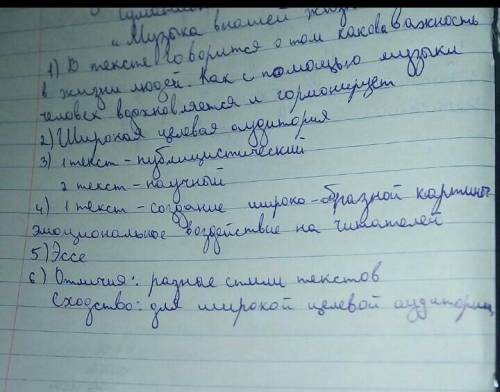 "Музыка в нашей жизни
1) В тексте говорится о том какова важность
в жизни людей. Как с помощью музыки
человек вдохновляется и гормонирует
2) Широкая целевая аудитория
3) 1 текст - публицистический
2 текст - научной
4) 1 текст - создание широко-образной картины
эмоциональное воздействие на читателей
5) Эссе
6) Отличия: разное стили текстов
Сходство: для широкой целевой аудитории